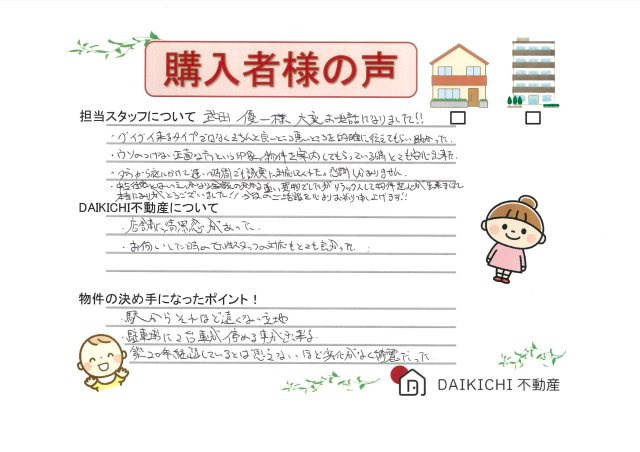 購入者様の声
担当スタッフについて 武田 優一様 大変お世話になりました!!
・グイグイ来るタイプではなくきちんと良いところ悪いところを的確に伝えてもらい助かった。
・ウソのつけない正直な方という印象。物件を案内してもらっている時とても安心出来た。
・夕方から夜にかけて遅い時間でも誠実に対応してくれた。感謝しかありません。
本当にありがとうございました!! 今後のご活躍を心よりお祈り申し上げます!!
DAIKICHI不動産について
・店舗に清潔感があった
・お伺いした時の他スタッフの対応もとても良かった
物件の決め手になったポイント!
・駅からそれほど遠くない立地
・駐車場に2台車が停める事が出来る
・築20年経過しているとは思えないほど劣化がなく綺麗だった
DAIKICHI 不動産